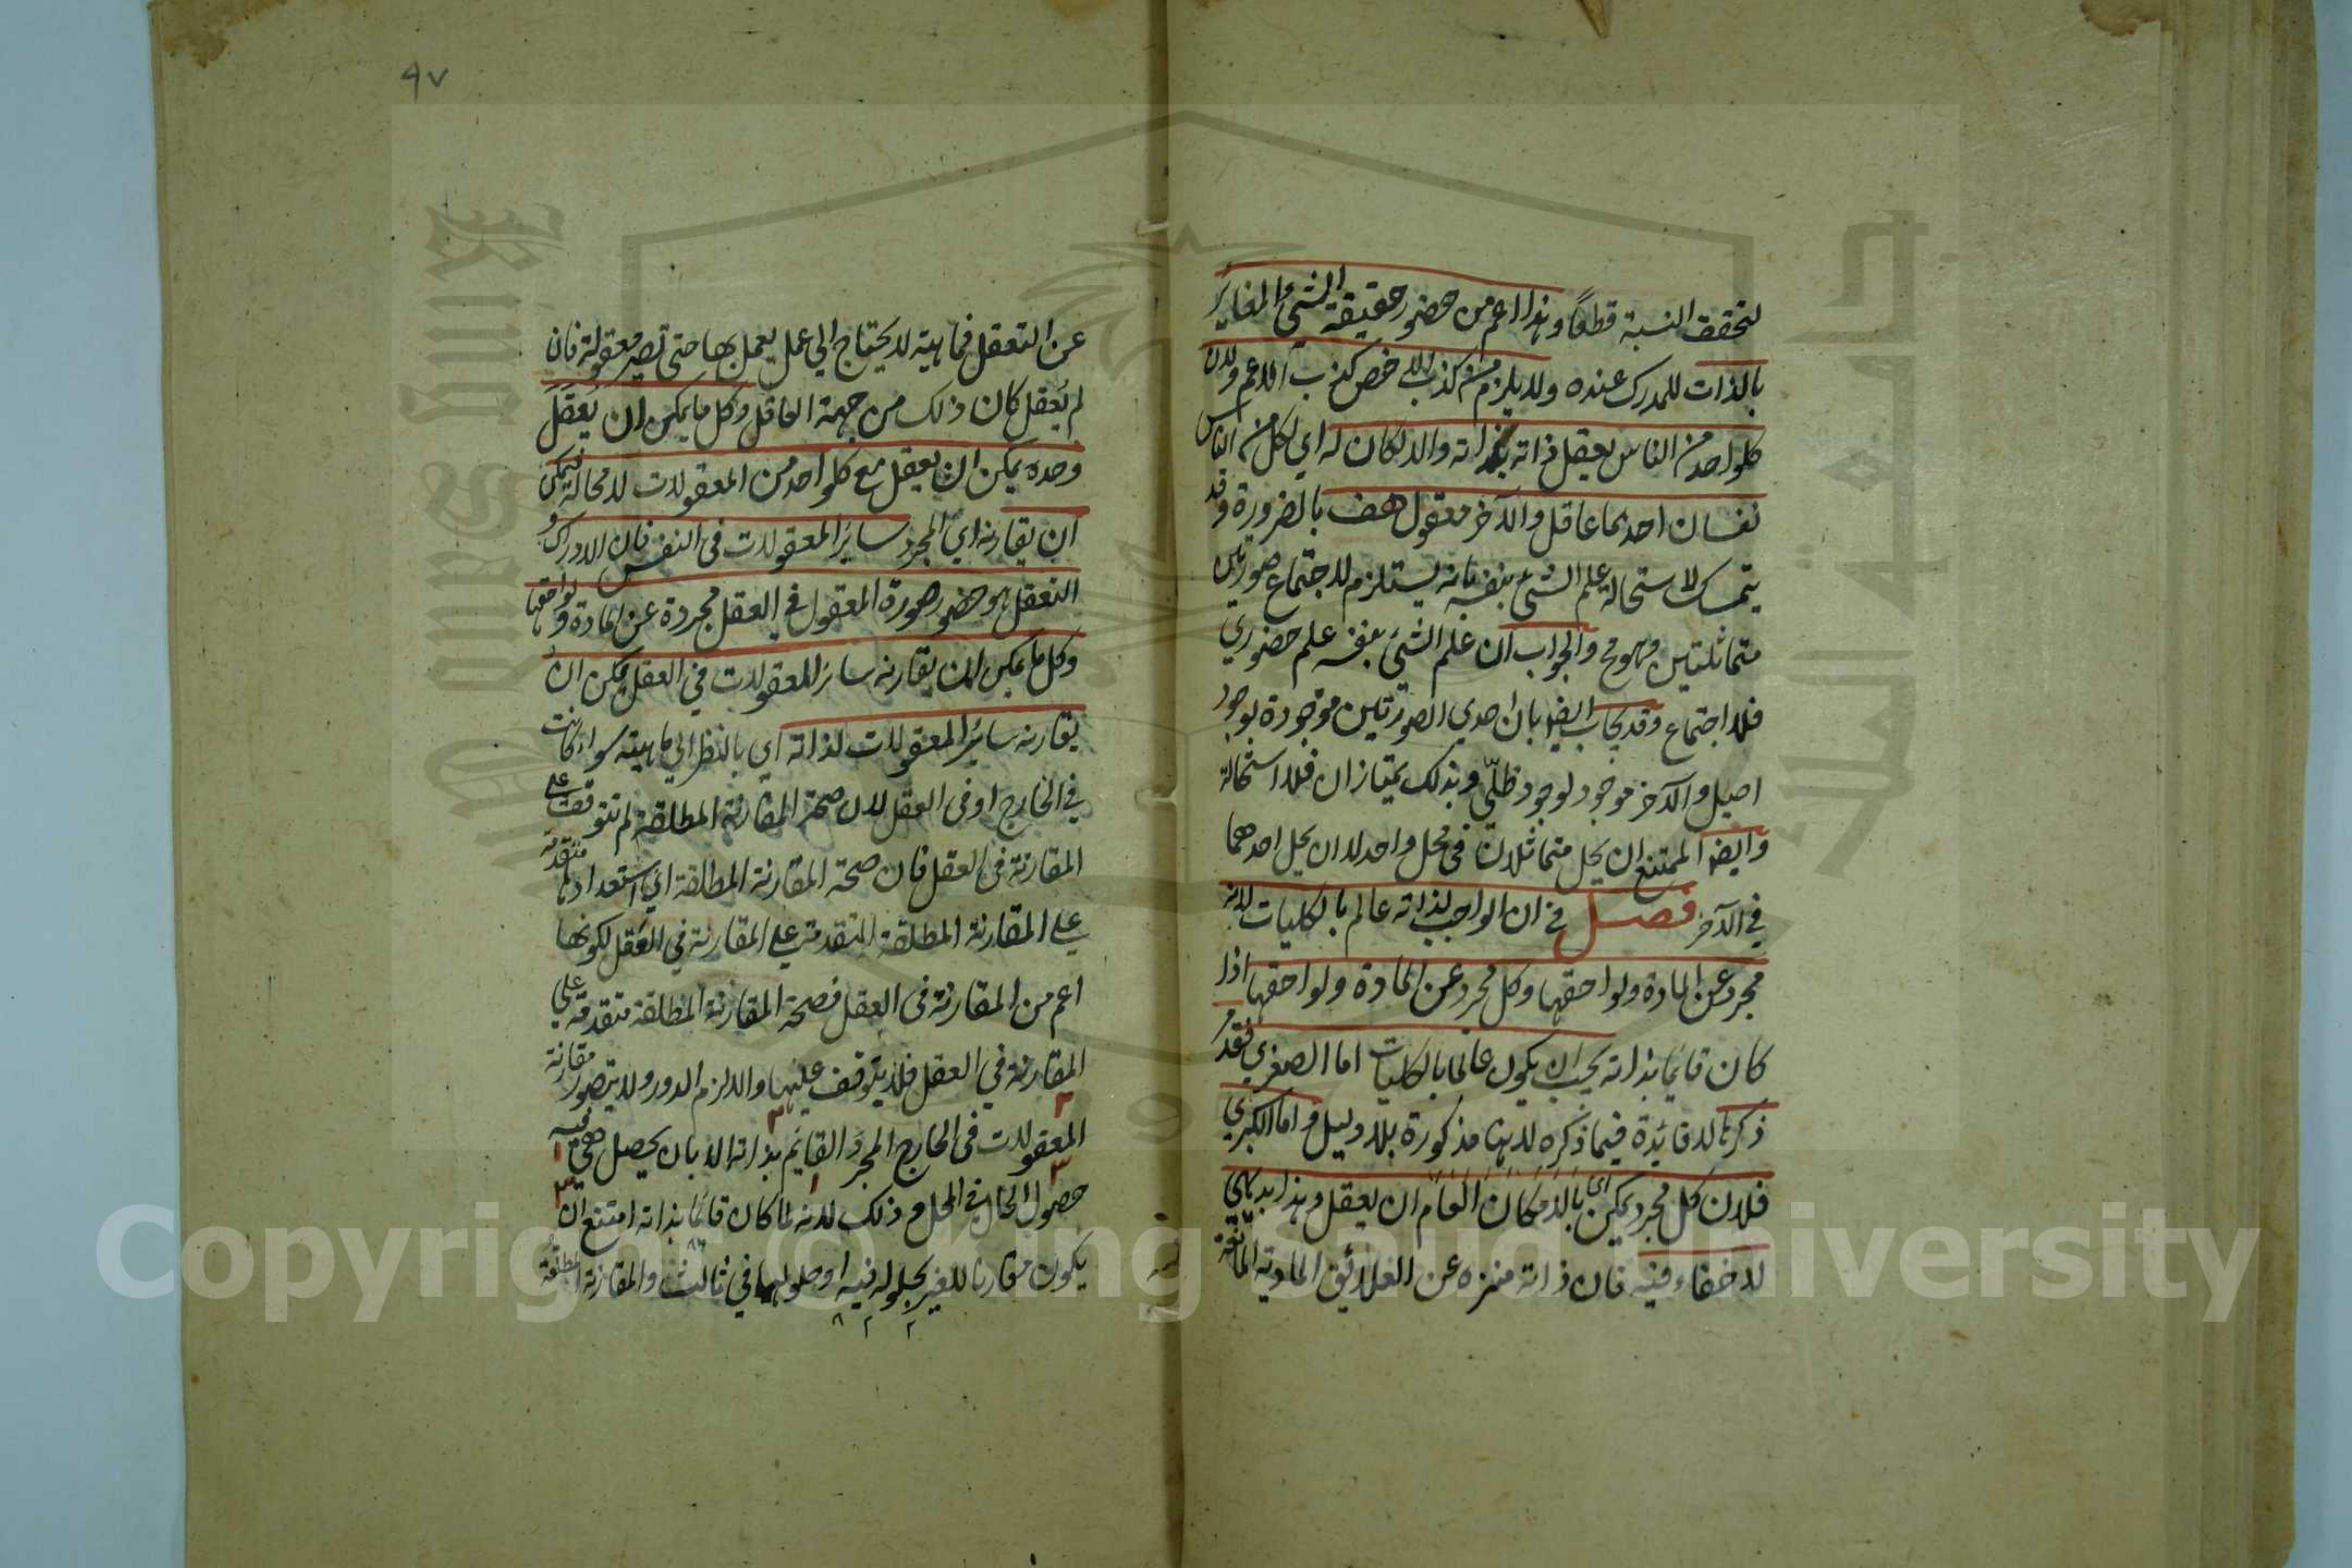 لتحقق النسبة قطعًا وهذا اعم من حضور حقيقة الشيء المغاير
بالذات للمدرك عنده ولا يلزم من كذب الاخص كذب الاعم ولان
كل واحد من الناس يعقل ذاته بذاته والا لكان له اي لكل من الناس
نفسان احدهما عاقل والآخر معقول هف بالضرورة وقد
يتمسك لاستحالة علم الشيء بنفسه بانه يستلزم لاجتماع صورتين
متماثلتين وهو مح والجواب ان علم الشيء بنفسه علم حضوري
فلا اجتماع وقد يجاب ايضا بان احدي الصورتين موجودة بوجود
اصيل والآخر موجود لوجود ظلّي وبذلك يمتازان فلا استحالة
وايضا الممتنع ان يحل متماثلان في محل واحد لا ان يحل احدهما
في الآخر فصل في ان الواجب لذاته عالم بالكليات لانه
مجرد عن المادة ولواحقها وكل مجرد عن المادة ولواحقها اذا
كان قائما بذاته يجب ان يكون عالما بالكليات اما الصغري فقد مر
ذكرها لا فائدة فيما ذكره لانها مذكورة بلا دليل واما الكبري
فلان كل مجرد يمكن اي بالامكان العام ان يعقل وهذا بديهي
لا خفاء فيه فان ذاته منزه عن العلائق المادية المانعة
٩٧
عن التعقل فماهيته لا يحتاج الي عمل يعمل بها حتى تصير معقولة فان
لم يعقل كان ذلك من جهة العاقل وكل ما يمكن ان يعقل
وحده يمكن ان يعقل مع كل واحد من المعقولات لا محالة فيمكن
ان يقارنه اي المجرد ساير المعقولات في النفس فان الادراك و
التعقل هو حضور صورة المعقول في العقل مجردة عن المادة ولواحقها
وكل ما يمكن ان يقارنه ساير المعقولات في العقل يمكن ان
يقارنه ساير المعقولات لذاته اي بالنظر الي ماهيته سواء كانت
في الخارج او في العقل لان صحة المقارنة المطلقة لم تتوقف علي
المقارنة في العقل فان صحة المقارنة المطلقة اي استعدادها متقدمة
علي المقارنة المطلقة المتقدمة علي المقارنة في العقل لكونها
اعم من المقارنة في العقل فصحة المقارنة المطلقة متقدمة علي
المقارنة في العقل فلا يتوقف عليها والا لزم الدور ولا يتصور مقارنة
المعقولات في الخارج المجرد القايم بذاته الا بان يحصل هي فيه
حصول الحال في المحل وذلك لانه لما كان قائما بذاته امتنع ان
يكون مقارنا للغير بحلوله فيه او حلولهما في ثالث والمقارنة المطلقة